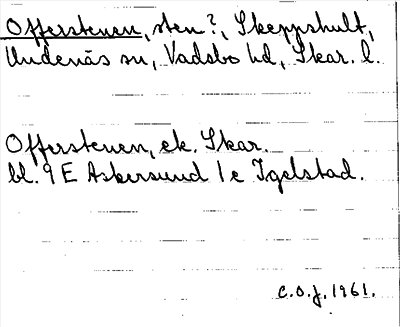 Offerstenen, sten?, Skeppshult,
Undenäs sn, Vadsbo hd, Skar. l.
Offerstenen, ek. Skar.
bl. 9 E Askersund 1 e Igelstad.
C.O.J. 1961.